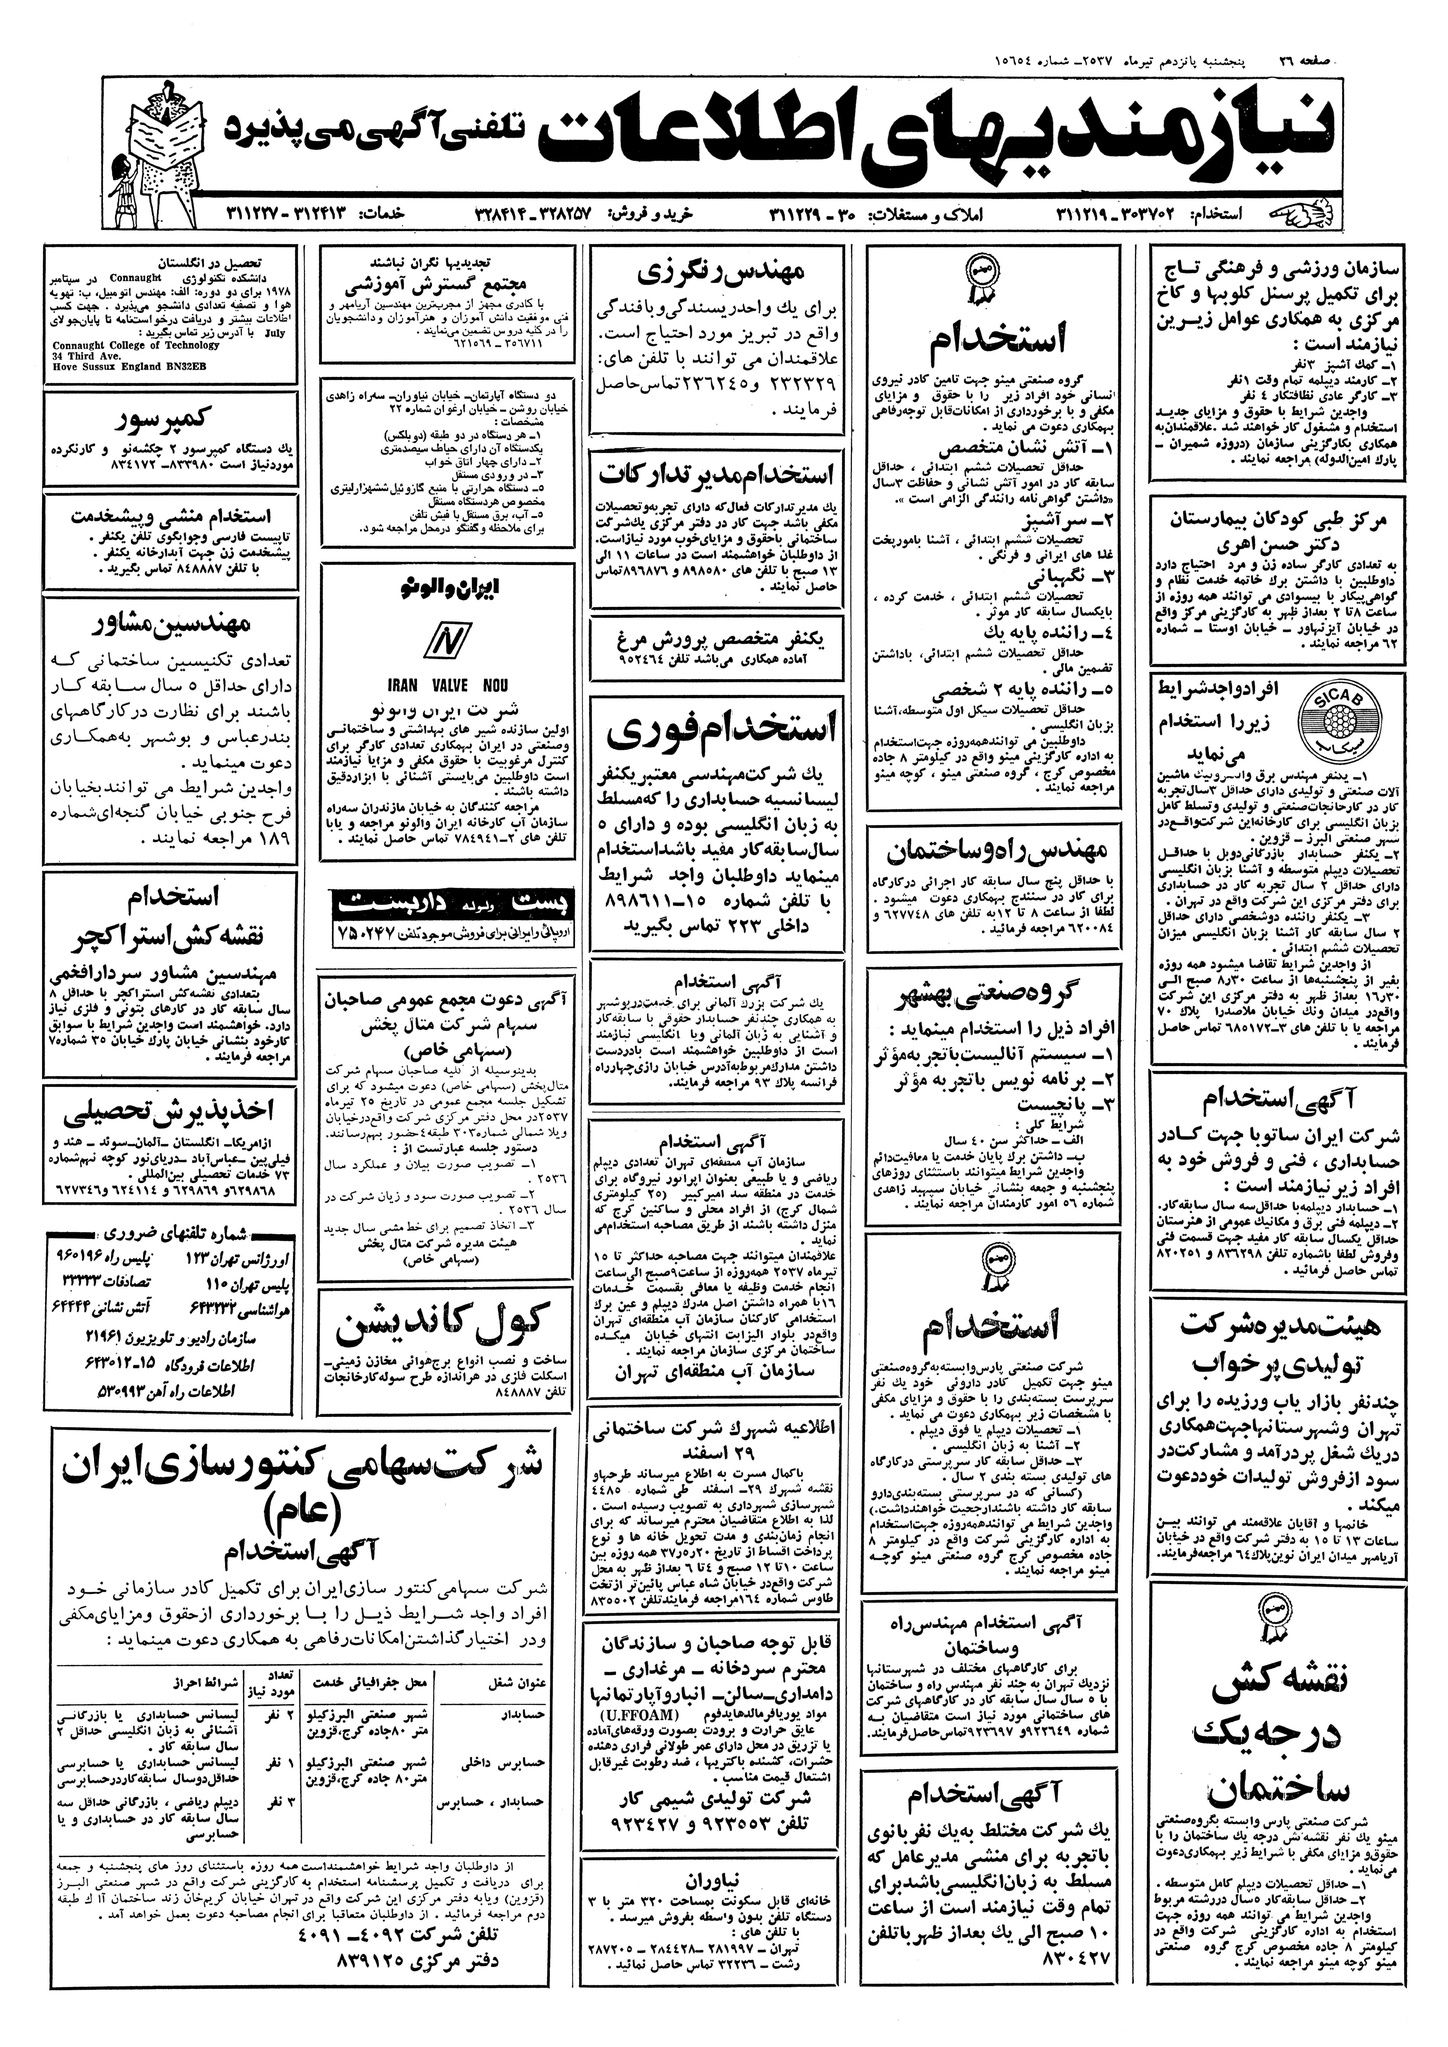 صفحه ۲۶ پنجشنبه پانزدهم تیرماه ۲۵۳۷- شماره ۱۵۶۵۴
نیازمندیهای اطلاعات تلفنی آگهی می‌پذیرد
استخدام: ۳۰۳۷۰۲ - ۳۱۱۲۱۹ املاک و مستغلات: ۳۰ - ۳۱۱۲۲۹ خرید و فروش: ۳۲۸۲۵۷ - ۳۲۸۴۱۴ خدمات: ۳۱۲۴۱۳ - ۳۱۱۲۲۷
سازمان ورزشی و فرهنگی تاج
برای تکمیل پرسنل کلوبها و کاخ
مرکزی به همکاری عوامل زیرین
نیازمند است :
۱- کمک آشپز ۳نفر
۲- کارمند دیپلمه تمام وقت ۱نفر
۳- کارگر عادی نظافتکار ۴ نفر
واجدین شرایط با حقوق و مزایای جدید
استخدام و مشغول کار خواهند شد .علاقمندان به
همکاری بکارگزینی سازمان (دروزه شمیران -
پارك امین‌الدوله) مراجعه نمایند .
مرکز طبی کودکان بیمارستان
دکتر حسن اهری
به تعدادی کارگر ساده زن و مرد احتیاج دارد
داوطلبین با داشتن برك خاتمه خدمت نظام و
گواهی‌پیکار با بیسوادی می توانند همه روزه از
ساعت ۸تا ۲ بعداز ظهر به کارگزینی مرکز واقع
در خیابان آیزنهاور - خیابان اوستا - شماره
۶۲ مراجعه نمایند .
SICAB
سیکاب
افراد واجد شرایط
زیر را استخدام
می‌نماید
۱- یکنفر مهندس برق والکترونیک ماشین
آلات صنعتی و تولیدی دارای حداقل ۳سال‌تجربه
کار در کارخانجات‌صنعتی و تولیدی وتسلط کامل
بزبان انگلیسی برای کارخانه‌این شرکت‌واقع‌در
شهر صنعتی البرز - قزوین .
۲- یکنفر حسابدار بازرگانی‌دوبل با حداقل
تحصیلات دیپلم متوسطه و آشنا بزبان انگلیسی
دارای حداقل ۲ سال تجربه کار در حسابداری
برای دفتر مرکزی این شرکت واقع در تهران .
۳- یکنفر راننده دوشخصی دارای حداقل
۲ سال سابقه کار آشنا بزبان انگلیسی میزان
تحصیلات ششم ابتدائی .
از واجدین شرایط تقاضا میشود همه روزه
بغیر از پنجشنبه‌ها از ساعت ۸ر۳۰ صبح الی
۱۶ر۳۰ بعداز ظهر به دفتر مرکزی این شرکت
واقع‌در میدان ونك خیابان ملاصدرا پلاك ۷۰
مراجعه یا با تلفن های ۳-۶۸۵۱۷۲ تماس حاصل
فرمایند .
آگهی استخدام
شرکت ایران ساتوبا جهت کادر
حسابداری ، فنی و فروش خود به
افراد زیر نیازمند است :
۱- حسابدار دیپلمه با حداقل سه سال سابقه‌کار.
۲- دیپلمه فنی برق و مکانیک عمومی از هنرستان
حداقل یکسال سابقه کار مفید جهت قسمت فنی
وفروش لطفا باشماره تلفن ۸۳۶۲۹۸ و ۸۲۰۲۵۱
تماس حاصل فرمائید .
هیئت مدیره شرکت
تولیدی پرخواب
چند نفر بازار یاب ورزیده را برای
تهران وشهرستانها جهت همکاری
در یك شغل پر درآمد و مشارکت‌در
سود از فروش تولیدات خود دعوت
میکند .
خانمها و آقایان علاقه‌مند می توانند بین
ساعات ۱۳ تا ۱۵ به دفتر شرکت واقع در خیابان
آریامهر میدان ایران نوین‌پلاك ۶۴ مراجعه‌فرمایند.
مینو
نقشه کش
درجه یک
ساختمان
شرکت صنعتی پارس وابسته بگروه‌صنعتی
مینو یك نفر نقشه‌کش درجه یك ساختمان را با
حقوق و مزایای مکفی با شرایط زیر بهمکاری‌دعوت
می‌نماید .
۱- حداقل تحصیلات دیپلم کامل متوسطه .
۲- حداقل سابقه‌کار ۵سال دررشته مربوط
واجدین شرایط می توانند همه روزه جهت
استخدام به اداره کارگزینی شرکت واقع در
کیلومتر ۸ جاده مخصوص کرج گروه صنعتی
مینو کوچه مینو مراجعه نمایند .
مینو
استخدام
گروه صنعتی مینو جهت تامین کادر نیروی
انسانی خود افراد زیر را با حقوق و مزایای
مکفی و با برخورداری از امکانات‌قابل توجه‌رفاهی
بهمکاری دعوت می نماید .
۱- آتش نشان متخصص
حداقل تحصیلات ششم ابتدائی ، حداقل
سابقه کار در امور آتش نشانی و حفاظت ۳سال
«داشتن گواهی‌نامه رانندگی الزامی است ».
۲- سر آشپز
تحصیلات ششم ابتدائی ، آشنا بامورپخت
غذا های ایرانی و فرنگی .
۳- نگهبانی
تحصیلات ششم ابتدائی ، خدمت کرده ،
بایکسال سابقه کار موثر .
۴- راننده پایه یك
حداقل تحصیلات ششم ابتدائی، باداشتن
تضمین مالی .
۵- راننده پایه ۲ شخصی
حداقل تحصیلات سیکل اول متوسطه،آشنا
بزبان انگلیسی .
داوطلبین می توانند همه‌روزه جهت‌استخدام
به اداره کارگزینی مینو واقع در کیلومتر ۸ جاده
مخصوص کرج ، گروه صنعتی مینو ، کوچه مینو
مراجعه نمایند .
مهندس راه و ساختمان
با حداقل پنج سال سابقه کار اجرائی درکارگاه
برای کار در سنندج بهمکاری دعوت میشود .
لطفا از ساعت ۸ تا ۱۲ به تلفن های ۶۲۷۷۴۸ و
۶۲۰۰۸۴ مراجعه فرمائید .
گروه صنعتی بهشهر
افراد ذیل را استخدام مینماید :
۱- سیستم آنالیست با تجربه مؤثر
۲- برنامه نویس با تجربه مؤثر
۳- پانچیست
شرایط کلی :
الف - حداکثر سن ۴۰ سال
ب- داشتن برك پایان خدمت یا معافیت‌دائم
واجدین شرایط میتوانند باستثنای روزهای
پنجشنبه و جمعه بنشانی خیابان سپهبد زاهدی
شماره ۵۶ امور کارمندان مراجعه نمایند .
مینو
استخدام
شرکت صنعتی پارس وابسته به‌گروه‌صنعتی
مینو جهت تکمیل کادر داروئی خود یک نفر
سرپرست بسته‌بندی را با حقوق و مزایای مکفی
با مشخصات زیر بهمکاری دعوت می نماید .
۱- تحصیلات دیپلم یا فوق دیپلم .
۲- آشنا به زبان انگلیسی .
۳- حداقل سابقه کار سرپرستی درکارگاه
های تولیدی بسته بندی ۲ سال .
(کسانی که در سرپرستی بسته‌بندی‌دارو
سابقه کار داشته باشند ارجحیت خواهند داشت.)
واجدین شرایط می توانند همه‌روزه جهت‌استخدام
به اداره کارگزینی شرکت واقع در کیلومتر ۸
جاده مخصوص کرج گروه صنعتی مینو کوچه
مینو مراجعه نمایند .
آگهی استخدام مهندس راه
و ساختمان
برای کارگاههای مختلف در شهرستانها
نزدیک تهران به چند نفر مهندس راه و ساختمان
با ۵ سال سال سابقه کار در کارگاههای شرکت
های ساختمانی مورد نیاز است متقاضیان به
شماره ۹۲۲۶۴۹و ۹۲۳۶۹۷تماس‌حاصل‌فرمایند.
آگهی استخدام
یك شرکت مختلط به یك نفر بانوی
با تجربه برای منشی مدیر عامل که
مسلط به زبان انگلیسی باشد برای
تمام وقت نیازمند است از ساعت
۱۰ صبح الی یك بعداز ظهر با تلفن
۸۳۰۴۲۷
مهندس رنگرزی
برای یك واحد ریسندگی و بافندگی
واقع در تبریز مورد احتیاج است.
علاقمندان می توانند با تلفن های:
۲۳۲۳۲۹ و ۲۳۶۲۴۵ تماس حاصل
فرمایند .
استخدام مدیر تدارکات
یك مدیر تدارکات فعال‌که دارای تجربه‌وتحصیلات
مکفی باشد جهت کار در دفتر مرکزی یك‌شرکت
ساختمانی باحقوق و مزایای‌خوب مورد نیازاست.
از داوطلبان خواهشمند است در ساعات ۱۱ الی
۱۳ صبح با تلفن های ۸۹۸۵۸۰ و ۸۹۶۸۷۶تماس
حاصل نمایند .
یکنفر متخصص پرورش مرغ
آماده همکاری می‌باشد تلفن ۹۵۲۴۶۴
استخدام فوری
یك شرکت مهندسی معتبر یکنفر
لیسانسیه حسابداری را که مسلط
به زبان انگلیسی بوده و دارای ۵
سال سابقه کار مفید باشد استخدام
مینماید داوطلبان واجد شرایط
با تلفن شماره ۱۵-۸۹۸۶۱۱
داخلی ۲۲۳ تماس بگیرید
آگهی استخدام
یك شرکت بزرك آلمانی برای خدمت‌دربوشهر
به همکاری چندنفر حسابدار حقوقی با سابقه‌کار
و آشنایی به زبان آلمانی ویا انگلیسی نیازمند
است از داوطلبین خواهشمند است بادردست
داشتن مدارك مربوط به‌آدرس خیابان رازی‌چهارراه
فرانسه پلاك ۹۳ مراجعه فرمایند.
آگهی استخدام
سازمان آب منطقه‌ای تهران تعدادی دیپلم
ریاضی و یا طبیعی بعنوان اپراتور نیروگاه برای
خدمت در منطقه سد امیرکبیر (۲۵ کیلومتری
شمال کرج) از افراد محلی و ساکنین کرج که
منزل داشته باشند از طریق مصاحبه استخدام‌می
نماید .
علاقمندان میتوانند جهت مصاحبه حداکثر تا ۱۵
تیرماه ۲۵۳۷ همه‌روزه از ساعت ۹صبح الی‌ساعت
انجام خدمت وظیفه یا معافی بقسمت خدمات
۱۶ با همراه داشتن اصل مدرك دیپلم و عین برك
استخدامی کارکنان سازمان آب منطقه‌ای تهران
واقع‌در بلوار الیزابت انتهای خیابان میکده
ساختمان مرکزی سازمان مراجعه نمایند .
سازمان آب منطقه‌ای تهران
اطلاعیه شهرك شرکت ساختمانی
۲۹ اسفند
باکمال مسرت به اطلاع میرساند طرحهاو
نقشه شهرك ۲۹- اسفند طی شماره ۴۴۸۵
شهرسازی شهرداری به تصویب رسیده است .
لذا به اطلاع متقاضیان محترم میرساند که برای
انجام زمان‌بندی و مدت تحویل خانه ها و نوع
پرداخت اقساط از تاریخ ۲۰ر۵ر۳۷ همه روزه بین
ساعت ۱۰ تا ۱۲ صبح و ۴ تا ۶ بعداز ظهر به محل
شرکت واقع‌در خیابان شاه عباس پائین‌تر ازتخت
طاوس شماره ۱۶۴مراجعه فرمایندتلفن ۸۳۵۵۰۲
قابل توجه صاحبان و سازندگان
محترم سردخانه - مرغداری -
دامداری-سالن- انبار و آپارتمانها
مواد یوریافرمالدهایدفوم (U.FFOAM)
عایق حرارت و برودت بصورت ورقه‌های‌آماده
یا تزریق در محل دارای عمر طولانی فراری دهنده
حشرات، کشنده باکتریها ، ضد رطوبت غیرقابل
اشتعال قیمت مناسب .
شرکت تولیدی شیمی کار
تلفن ۹۲۳۵۵۳ و ۹۲۳۴۲۷
نیاوران
خانه‌ای قابل سکونت بمساحت ۳۲۰ متر با ۳
دستگاه تلفن بدون واسطه بفروش میرسد .
با تلفن های :
تهران - ۲۸۱۹۹۷ -۲۸۴۴۲۸ - ۲۸۷۲۰۵
رشت - ۳۲۲۳۶ تماس حاصل نمائید .
تجدیدیها نگران نباشند
مجتمع گسترش آموزشی
با کادری مجهز از مجرب‌ترین مهندسین آریامهر و
فنی موفقیت دانش آموزان و هنرآموزان و دانشجویان
را در کلیه دروس تضمین می‌نمایند .
۳۵۶۷۱۱ - ۶۲۱۵۶۹
دو دستگاه آپارتمان- خیابان نیاوران- سه‌راه زاهدی
خیابان روشن - خیابان ارغوان شماره ۲۲
مشخصات :
۱- هر دستگاه در دو طبقه (دوبلکس)
یکدستگاه آن دارای حیاط سیصدمتری
۲- دارای چهار اتاق خواب
۳- در ورودی مستقل
۵- دستگاه حرارتی با منبع گازوئیل ششهزارلیتری
مخصوص هردستگاه مستقل
۵- آب، برق مستقل با فیش تلفن
برای ملاحظه و گفتگو درمحل مراجعه شود.
ایران والونو
IRAN VALVE NOU
شرکت ایران والونو
اولین سازنده شیر های بهداشتی و ساختمانی
وصنعتی در ایران بهمکاری تعدادی کارگر برای
کنترل مرغوبیت با حقوق مکفی و مزایا نیازمند
است داوطلبین می‌بایستی آشنائی با ابزاردقیق
داشته باشند .
مراجعه کنندگان به خیابان مازندران سه‌راه
سازمان آب کارخانه ایران والونو مراجعه و یابا
تلفن های ۲-۷۸۴۹۴۱ تماس حاصل نمایند .
بست ولوله داربست
اروپائی و ایرانی برای فروش موجود تلفن ۷۵۰۲۴۷
آگهی دعوت مجمع عمومی صاحبان
سهام شرکت متال پخش
(سهامی خاص)
بدینوسیله از کلیه صاحبان سهام شرکت
متال‌پخش (سهامی خاص) دعوت میشود که برای
تشکیل جلسه مجمع عمومی در تاریخ ۲۵ تیرماه
۲۵۳۷در محل دفتر مرکزی شرکت واقع‌درخیابان
ویلا شمالی شماره ۳۰۳ طبقه ۴ حضور بهم‌رسانند.
دستور جلسه عبارتست از :
۱- تصویب صورت بیلان و عملکرد سال
۲۵۳۶ .
۲- تصویب صورت سود و زیان شرکت در
سال ۲۵۳۶ .
۳- اتخاذ تصمیم برای خط مشی سال جدید
هیئت مدیره شرکت متال پخش
(سهامی خاص)
کول کاندیشن
ساخت و نصب انواع برج‌هوائی مخازن زمینی-
اسکلت فلزی در هراندازه طرح سوله‌کارخانجات
تلفن ۸۴۸۸۸۷
تحصیل در انگلستان
دانشکده تکنولوژی Connaught در سپتامبر
۱۹۷۸ برای دو دوره: الف: مهندس اتومبیل، ب: تهویه
هوا و تصفیه تعدادی دانشجو می‌پذیرد . جهت کسب
اطلاعات بیشتر و دریافت درخواست‌نامه تا پایان‌جولای
July با آدرس زیر تماس بگیرید :
Connaught College of Technology
34 Third Ave.
Hove Sussux England BN32EB
کمپرسور
یك دستگاه کمپرسور ۲ چکشه‌نو و کارنکرده
موردنیاز است ۸۳۳۹۸۰- ۸۳۴۱۷۲
استخدام منشی و پیشخدمت
تایپیست فارسی وجوابگوی تلفن یکنفر .
پیشخدمت زن جهت آبدارخانه یکنفر .
با تلفن ۸۴۸۸۸۷ تماس بگیرید .
مهندسین مشاور
تعدادی تکنیسین ساختمانی که
دارای حداقل ۵ سال سابقه کار
باشند برای نظارت در کارگاههای
بندرعباس و بوشهر به همکاری
دعوت مینماید .
واجدین شرایط می توانند بخیابان
فرح جنوبی خیابان گنجه‌ای شماره
۱۸۹ مراجعه نمایند .
استخدام
نقشه کش استراکچر
مهندسین مشاور سردار افخمی
بتعدادی نقشه‌کش استراکچر با حداقل ۸
سال سابقه کار در کارهای بتونی و فلزی نیاز
دارد، خواهشمند است واجدین شرایط با سوابق
کارخود بنشانی خیابان پارك خیابان ۳۵ شماره۷
مراجعه فرمایند .
اخذ پذیرش تحصیلی
ازامریکا- انگلستان -آلمان-سوئد - هند و
فیلی‌پین -عباس‌آباد -دریای‌نور کوچه نهم‌شماره
۷۳ خدمات تحصیلی بین‌المللی .
۶۲۹۸۶۸و ۶۲۹۸۶۹ و ۶۲۴۱۱۴ و ۶۲۷۳۴۶
شماره تلفنهای ضروری
اورژانس تهران ۱۲۳ پلیس راه ۹۶۰۱۹۶
پلیس تهران ۱۱۰ تصادفات ۳۳۳۳۳
هواشناسی ۶۴۳۲۳۲ آتش نشانی ۶۴۴۴۴
سازمان رادیو و تلویزیون ۲۱۹۶۱
اطلاعات فرودگاه ۱۵-۶۴۳۰۱۲
اطلاعات راه آهن ۵۳۰۹۹۳
شرکت سهامی کنتورسازی ایران
(عام)
آگهی استخدام
شرکت سهامی کنتور سازی ایران برای تکمیل کادر سازمانی خود
افراد واجد شرایط ذیل را با برخورداری از حقوق و مزایای مکفی
ودر اختیار گذاشتن امکانات رفاهی به همکاری دعوت مینماید :
عنوان شغل محل جغرافیائی خدمت تعداد مورد نیاز شرائط احراز
حسابدار شهر صنعتی البرزکیلو ۲ نفر لیسانس حسابداری یا بازرگانی
متر ۸۰جاده کرج،قزوین آشنائی به زبان انگلیسی حداقل ۲
سال سابقه کار .
حسابرس داخلی شهر صنعتی البرزکیلو ۱ نفر لیسانس حسابداری یا حسابرسی
متر ۸۰ جاده کرج،قزوین حداقل دوسال سابقه کار در حسابرسی
حسابدار ، حسابرس ۳ نفر دیپلم ریاضی ، بازرگانی حداقل سه
سال سابقه کار در حسابداری و یا
حسابرسی
از داوطلبان واجد شرایط خواهشمنداست همه روزه باستثنای روز های پنجشنبه و جمعه
برای دریافت و تکمیل پرسشنامه استخدام به کارگزینی شرکت واقع در شهر صنعتی البرز
(قزوین) ویابه دفتر مرکزی این شرکت واقع در تهران خیابان کریم‌خان زند ساختمان آ.ا.ك طبقه
دوم مراجعه فرمائید . از داوطلبان متعاقبا برای انجام مصاحبه دعوت بعمل خواهد آمد .
تلفن شرکت ۴۰۹۲ - ۴۰۹۱
دفتر مرکزی ۸۳۹۱۲۵